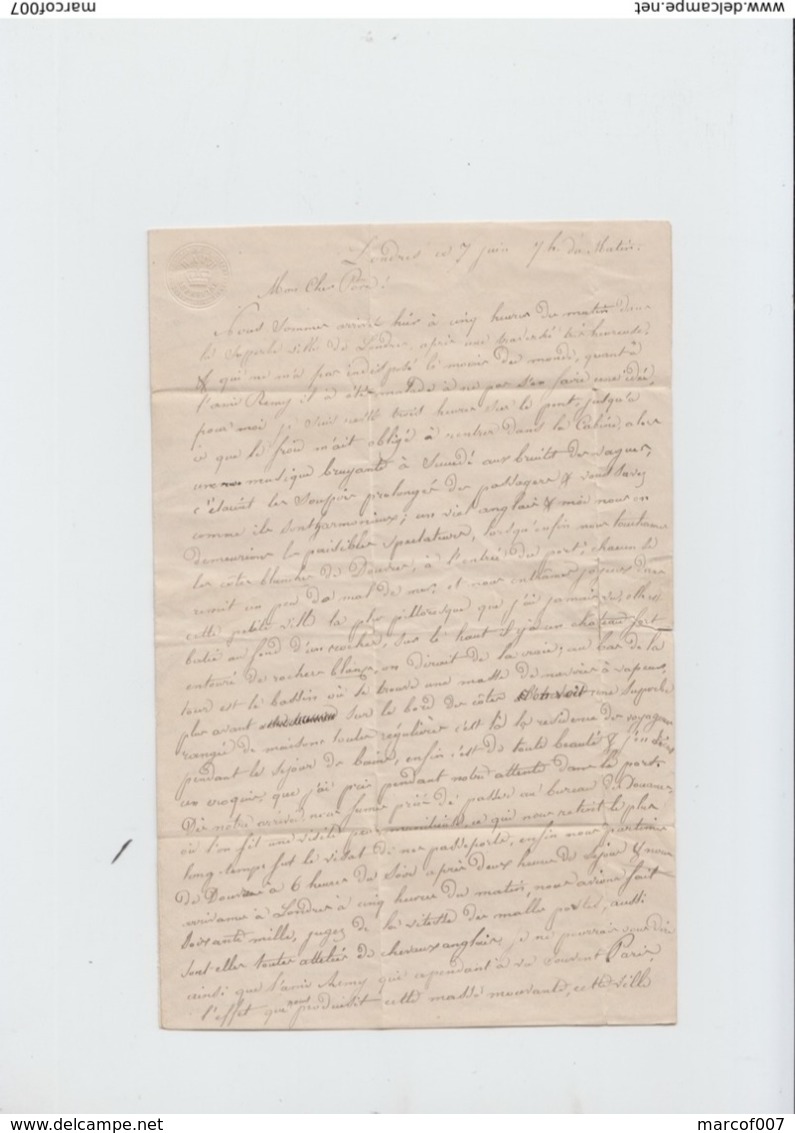 marcof007
www.delcampe.net
Londres ce 7 juin 7 h. du Matin.
Mon Cher Père!
Nous sommes arrivés hier à cinq heures du matin dans
la Superbe ville de Londres, après une traversée très heureuse
& qui ne m'a pas indisposé le moins du monde, quant à
l'ami Remy il à été malade à ne pas s'en faire une idée,
pour moi je suis resté trois heures sur le pont, jusqu'à
ce que le froid m'ait obligé à rentrer dans la Cabine, alors
une musique bruyante à succédé aux bruits des vagues,
c'étaient les Soupirs prolongés des passagers & vous savez
comme ils sont harmonieux; un viel anglais & moi nous en
demeurions les paisibles spectateurs, lorsqu'enfin nous touchames
les côtes blanches de Douvres, à l'entrée du port, chacun se
remit un peu du mal de mer et nous entrâmes joyeux dans
cette petite ville la plus pittoresque que j'ai jamais vu, elle est
batie au fond d'un rocher, sur le haut il y a un château fort
entouré de rochers blancs, on dirait de la craie; au bas de la
tour est le bassin où se trouve une masse de navires à vapeur,
plus avant sur le bord des côtes une superbe
rangée de maisons toutes régulières c'est là la residence des voyageurs
pendant le sejour de bains, enfin c'est de toute beauté &
ces croquis, que j'ai pris pendant notre attente dans le port.
Dès notre arrivée nous fumes priés de passer au bureau de Douanes,
où l'on fit une visite peu minutieuse, ce qui nous retint le plus
long-temps fut le visat de nos passeports, enfin nous partimes
de Douvres à 6 heures du soir après deux heures de sejour & nous
arrivames à Londres à cinq heures du matin, nous avions fait
soixante mille, jugez de la vitesse des malles postes, aussi
sont-elles toutes attelées de chevaux anglais, je ne pourrais vous dire
ainsi que l'ami Remy qui cependant à vu souvent Paris,
l'effet que nous produisit cette masse mouvante, cette ville
delcampe.net
marcof007